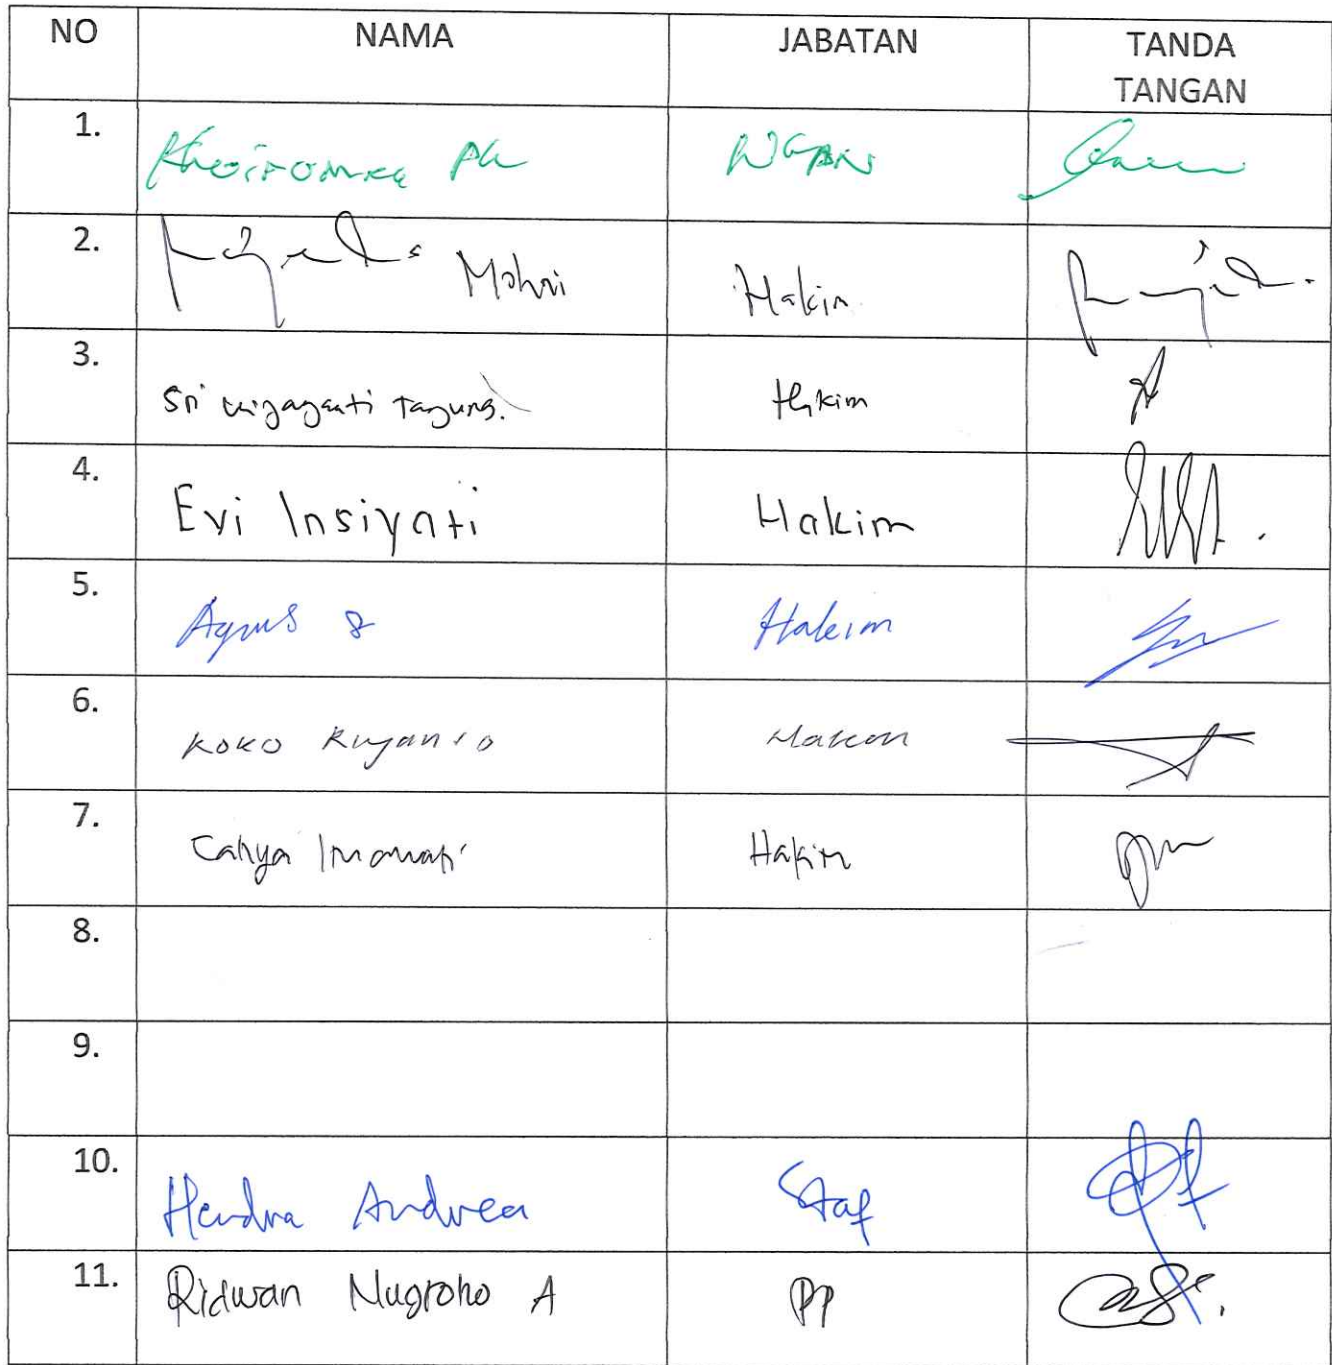 NO NAMA JABATAN TANDA
TANGAN
1.
2. Mohni Hakim
3. Sri Tagung. Hakim
4. Evi Insiyati Hakim
5. Agus S Hakim
6. Koko Riyanto Hakim
7. Cahya Imawati Hakim
8.
9.
10. Hendra Andrea Staf
11. Ridwan Nugroho A PP